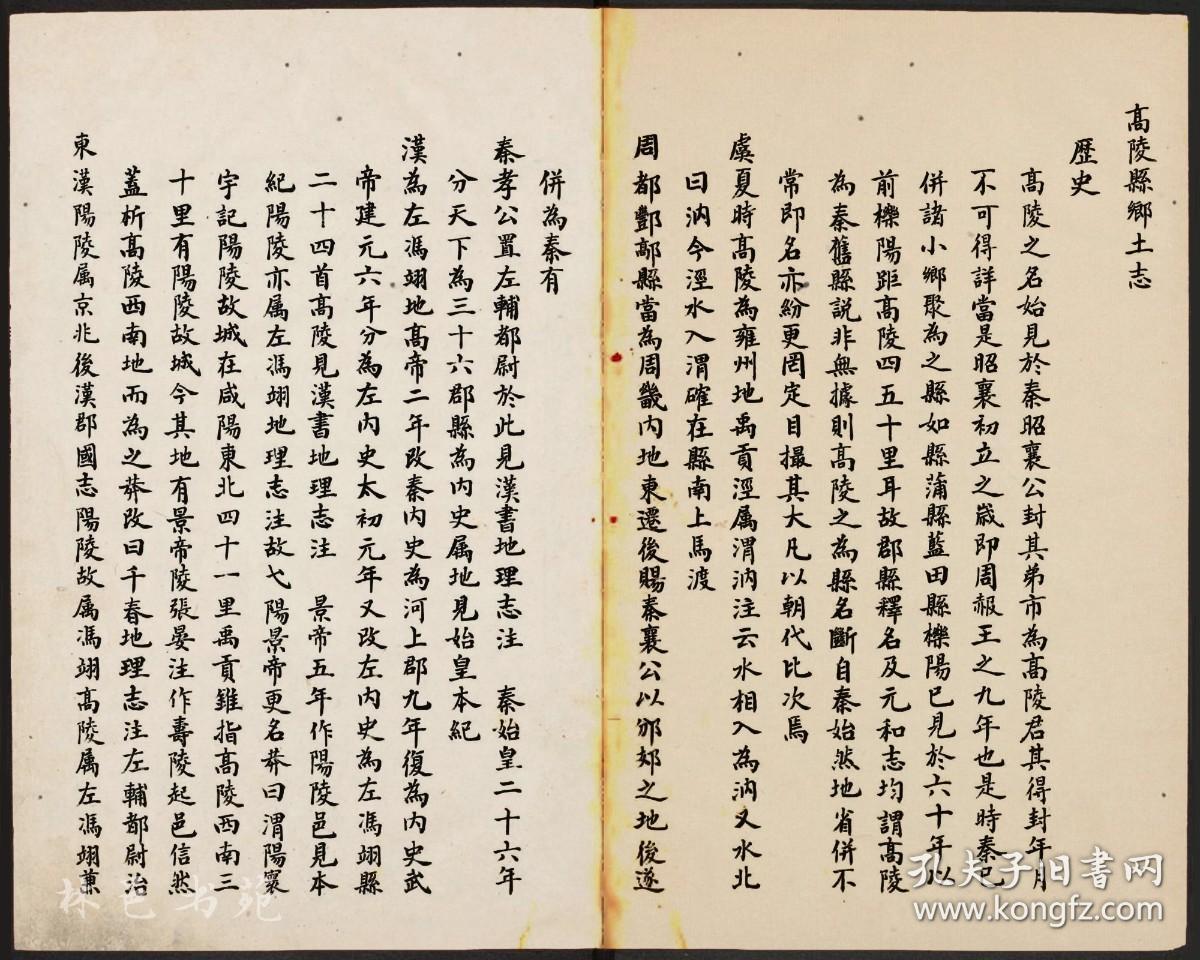 高陵縣鄉土志
歷史
高陵之名始見於秦昭襄公封其弟市為高陵君其得封年月
不可得詳當是昭襄初立之歲即周赧王之九年也是時秦已
併諸小鄉聚為之縣如縣蒲縣藍田縣櫟陽已見於六十年以
前櫟陽距高陵四五十里耳故郡縣釋名及元和志均謂高陵
為秦舊縣說非無據則高陵之為縣名斷自秦始然地省併不
常即名亦紛更罔定目撮其大凡以朝代比次焉
虞夏時高陵為雍州地禹貢涇属渭汭注云水相入為汭又水北
曰汭今涇水入渭確在縣南上馬渡
周都酆鄗縣當為周畿內地東遷後賜秦襄公以邠郊之地後遂
併為秦有
秦孝公置左輔都尉於此見漢書地理志注 秦始皇二十六年
分天下為三十六郡縣為內史属地見始皇本紀
漢為左馮翊地高帝二年改秦內史為河上郡九年復為內史武
帝建元六年分為左內史太初元年又改左內史為左馮翊縣
二十四首高陵見漢書地理志注 景帝五年作陽陵邑見本
紀陽陵亦属左馮翊地理志注故弋陽景帝更名莽曰渭陽寰
宇記陽陵故城在咸陽東北四十一里禹貢錐指高陵西南三
十里有陽陵故城今其地有景帝陵張晏注作壽陵起邑信然
蓋析高陵西南地而為之莽改曰千春地理志注左輔都尉治
東漢陽陵属京兆後漢郡國志陽陵故属馮翊高陵属左馮翊兼
孔夫子旧书网
www.kongfz.com
林邑书苑